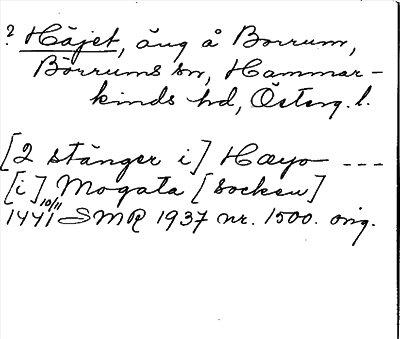 ? Häjet, äng å Borrum,
Börrums sn, Hammar-
kinds hd, Österg. l.
[2 stänger i] Hæyo ---
[i] Mogata [socken]
1441 10/11 SMR 1937 nr. 1500. orig.